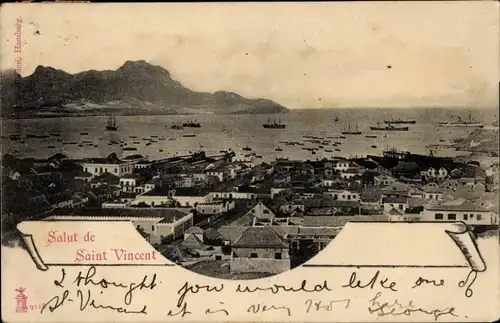 Salut de
Saint Vincent
I thought you would like one of
St. Vincent it is very hot here
George.